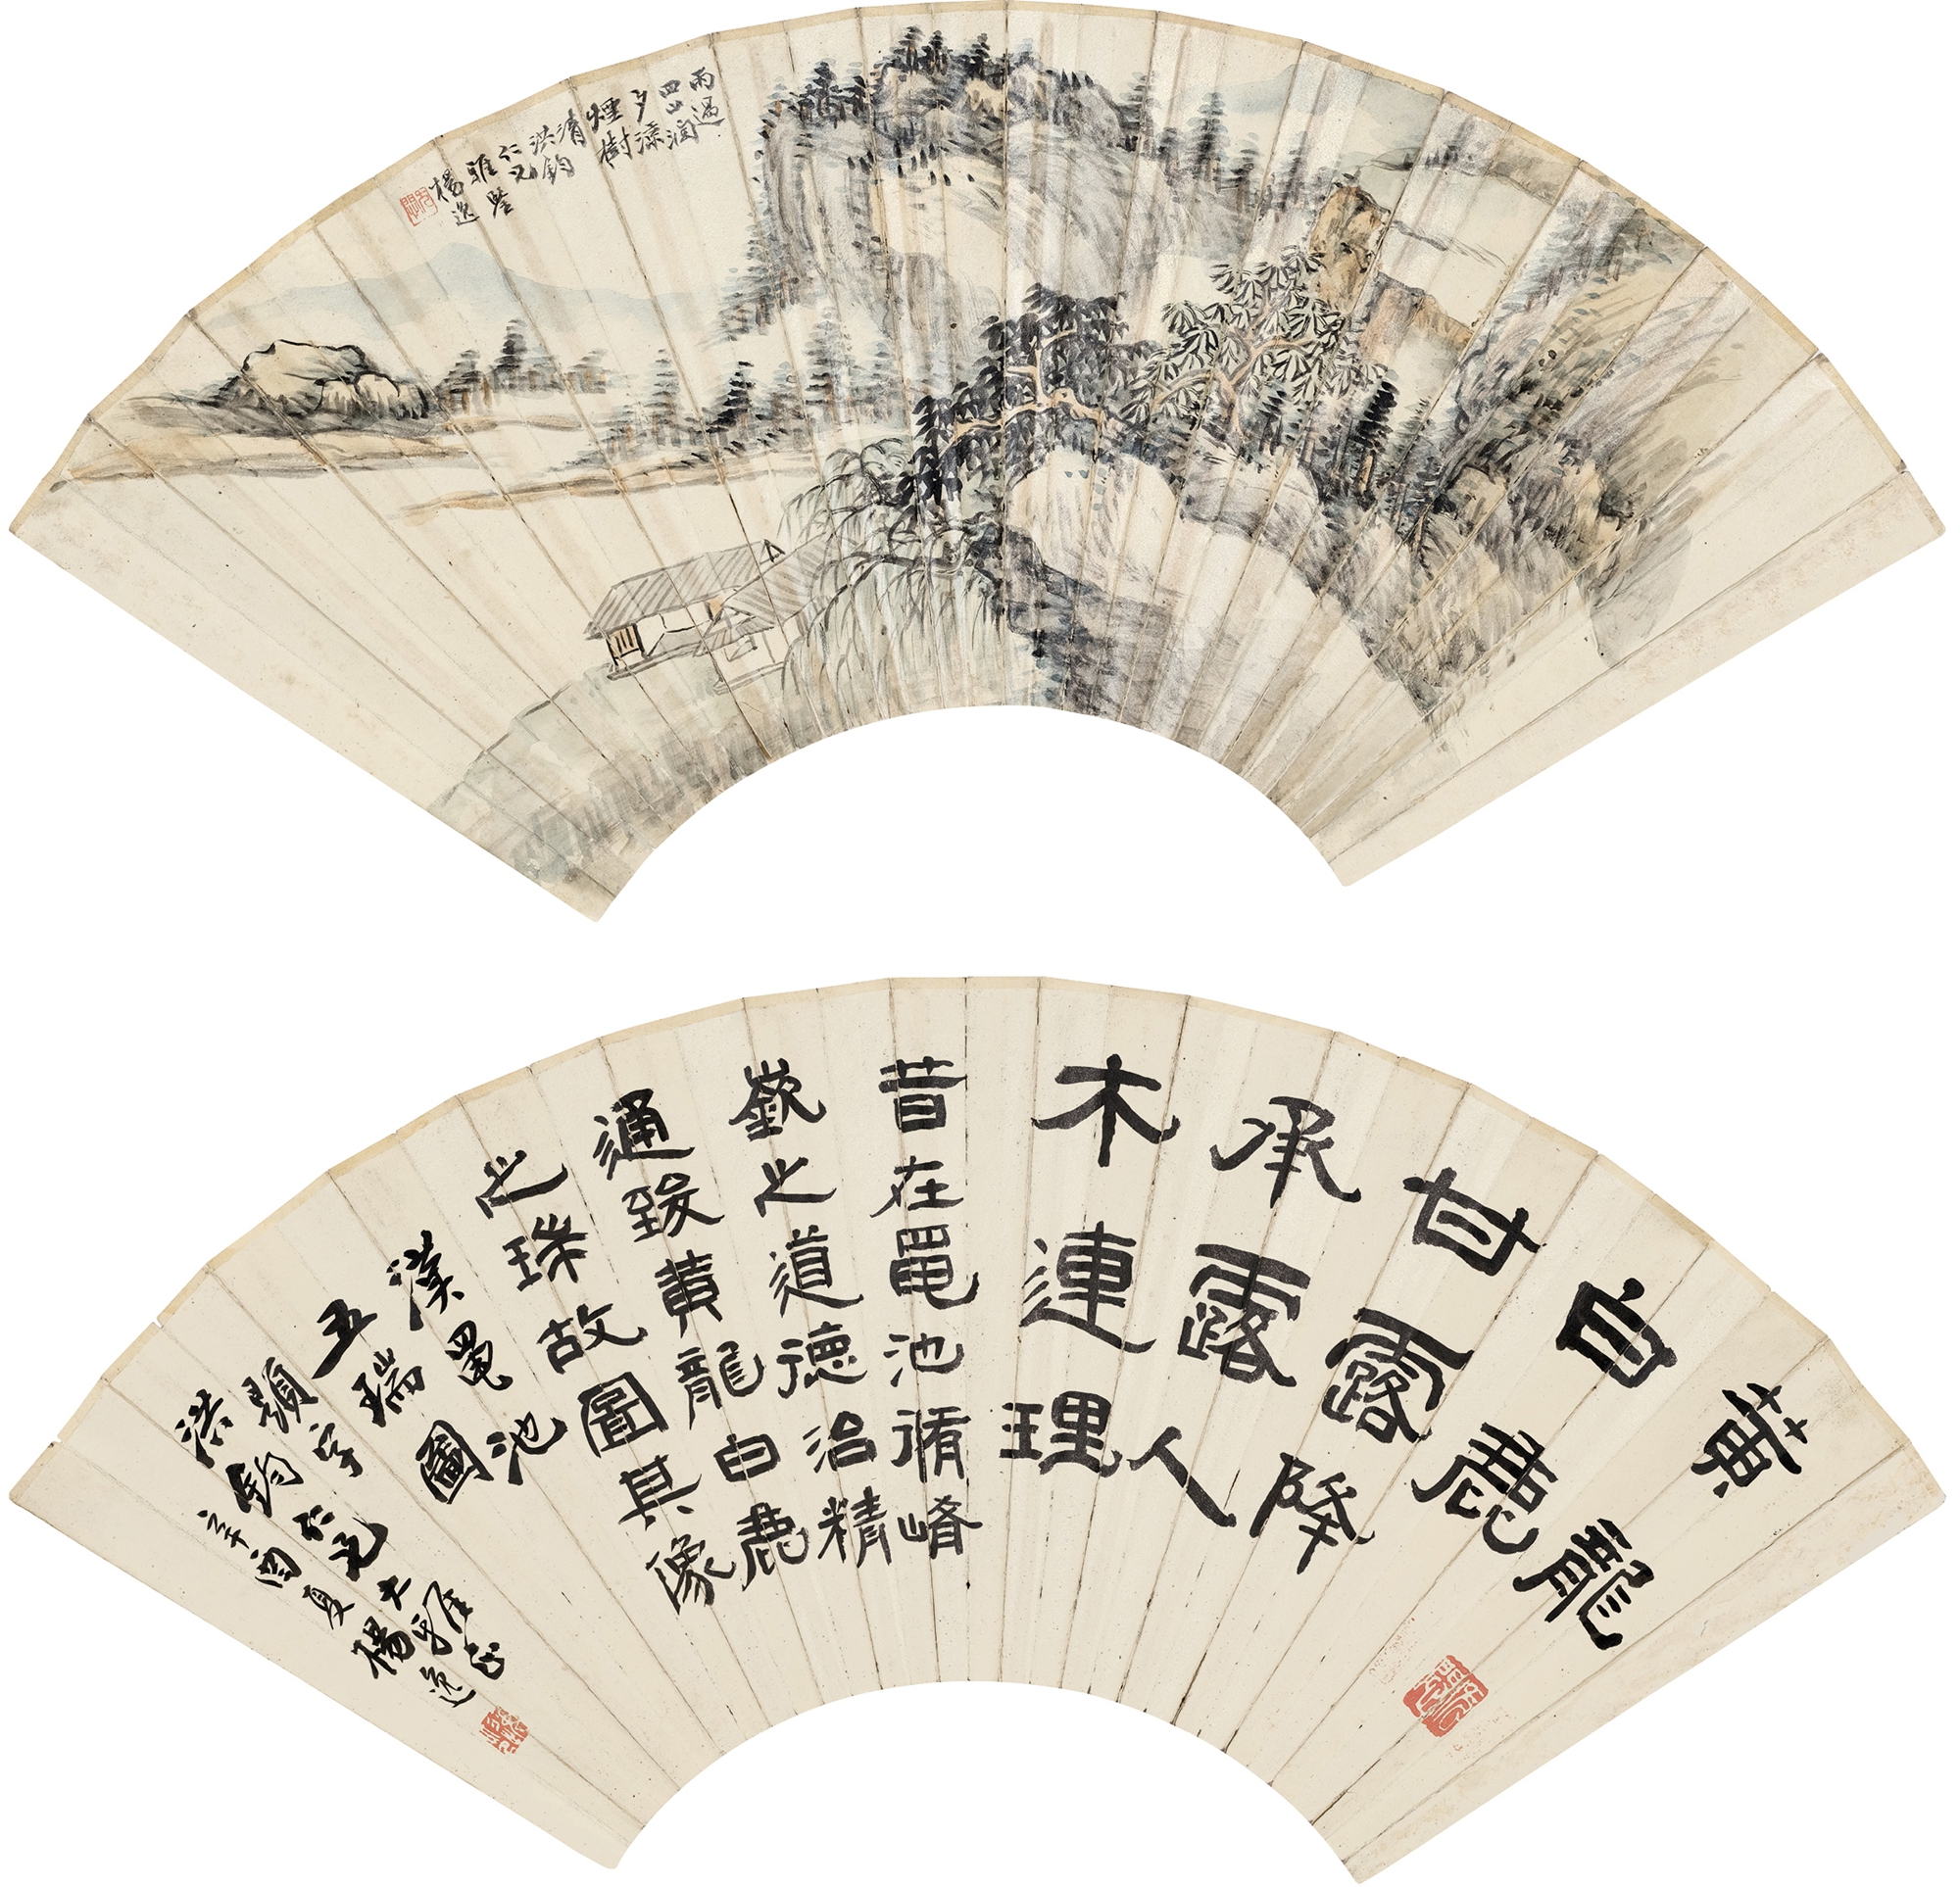 雨過
四山潤
夕添
煙樹
清
洪鈞
仁兄
雅鑒
楊逸
黃龍
白鹿
甘露降
承露人
木連理
昔在黽池脩崤
嶔之道德治精
通致黃龍白鹿
之瑞故圖其像
漢黽池
五瑞圖
題字
洪鈞仁兄大雅正
辛酉夏楊逸